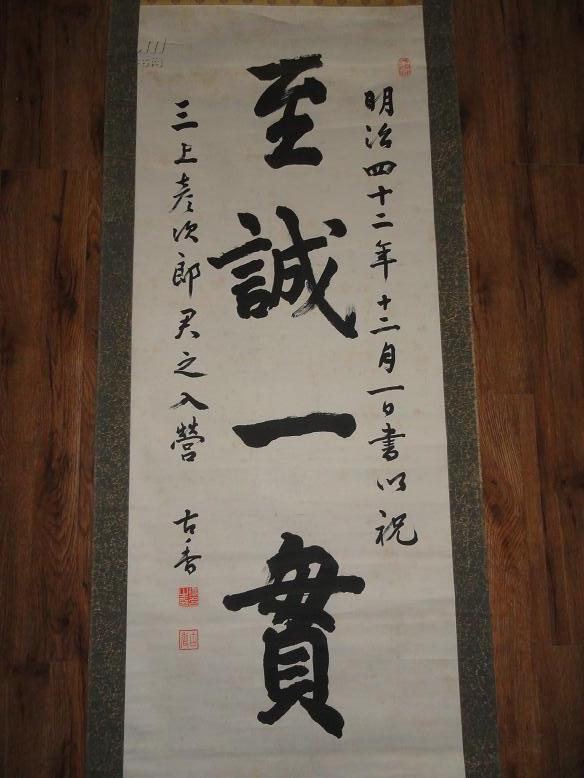 明治四十二年十二月一日書以祝
至誠一貫
三上彦次郎君之入營
古香